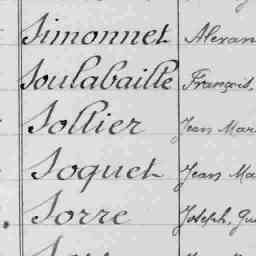 Simonnet Alexan
Soulabaille François,
Sollier Jean Mar
Soquet Jean Ma
Sorre Joseph, Gu